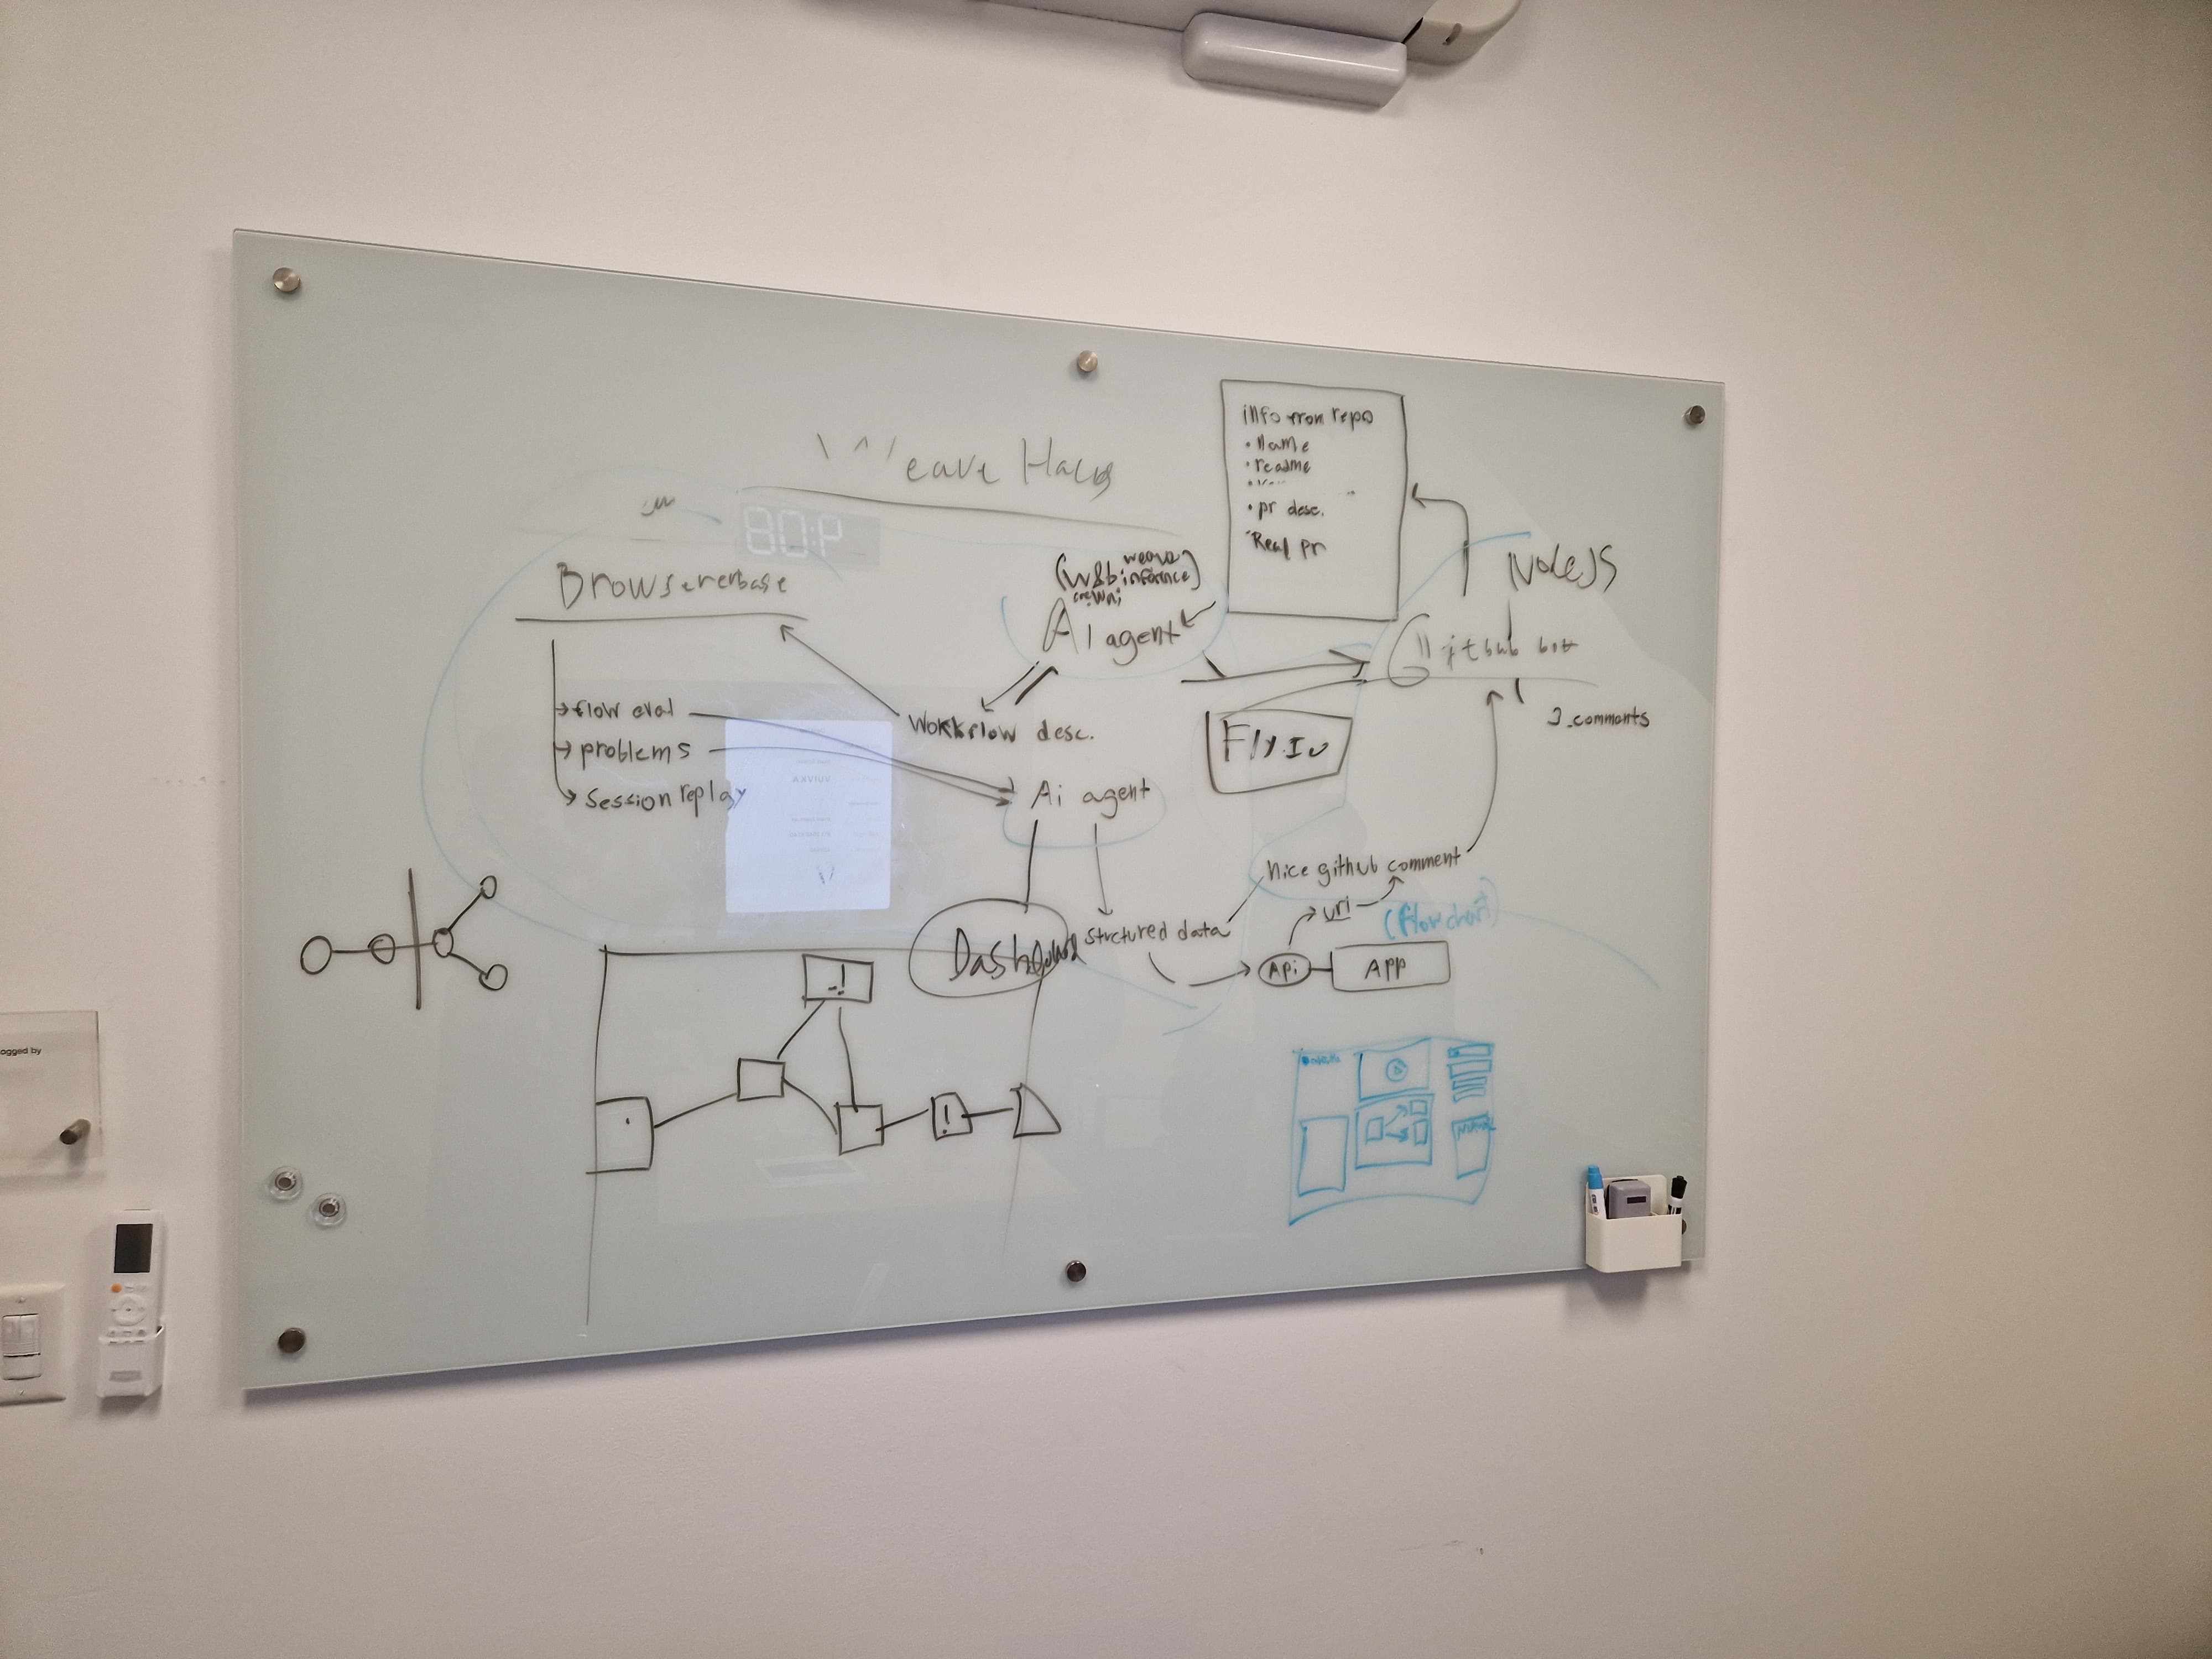 eave Hacks
info from repo
• name
• readme
• pr desc.
Real pr
Browsererbase
(W&b weave
inference)
AI agent
NodeJS
Github bot
flow eval
problems
session replay
Workflow desc.
Fly.Io
3 comments
Ai agent
nice github comment
uri
(flow chart)
Dashboard
strctured data
Api
APP
agged by